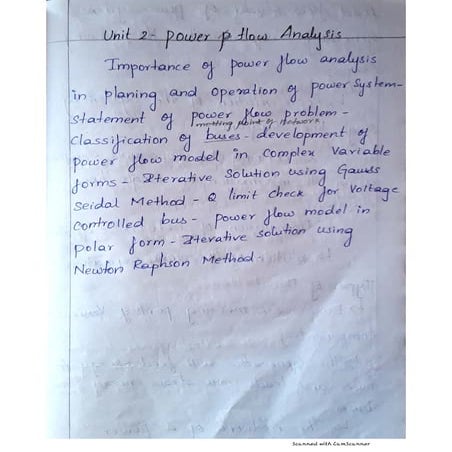 Unit 2 - power p flow Analysis
Importance of power flow analysis
in planing and operation of power system-
statement of power flow problem -
meeting point of network
classification of buses - development of
power flow model in complex variable
forms - Iterative solution using Gauss
Seidal Method - Q limit check for voltage
controlled bus - power flow model in
polar form - Iterative solution using
Newton Raphson Method.
Scanned with CamScanner